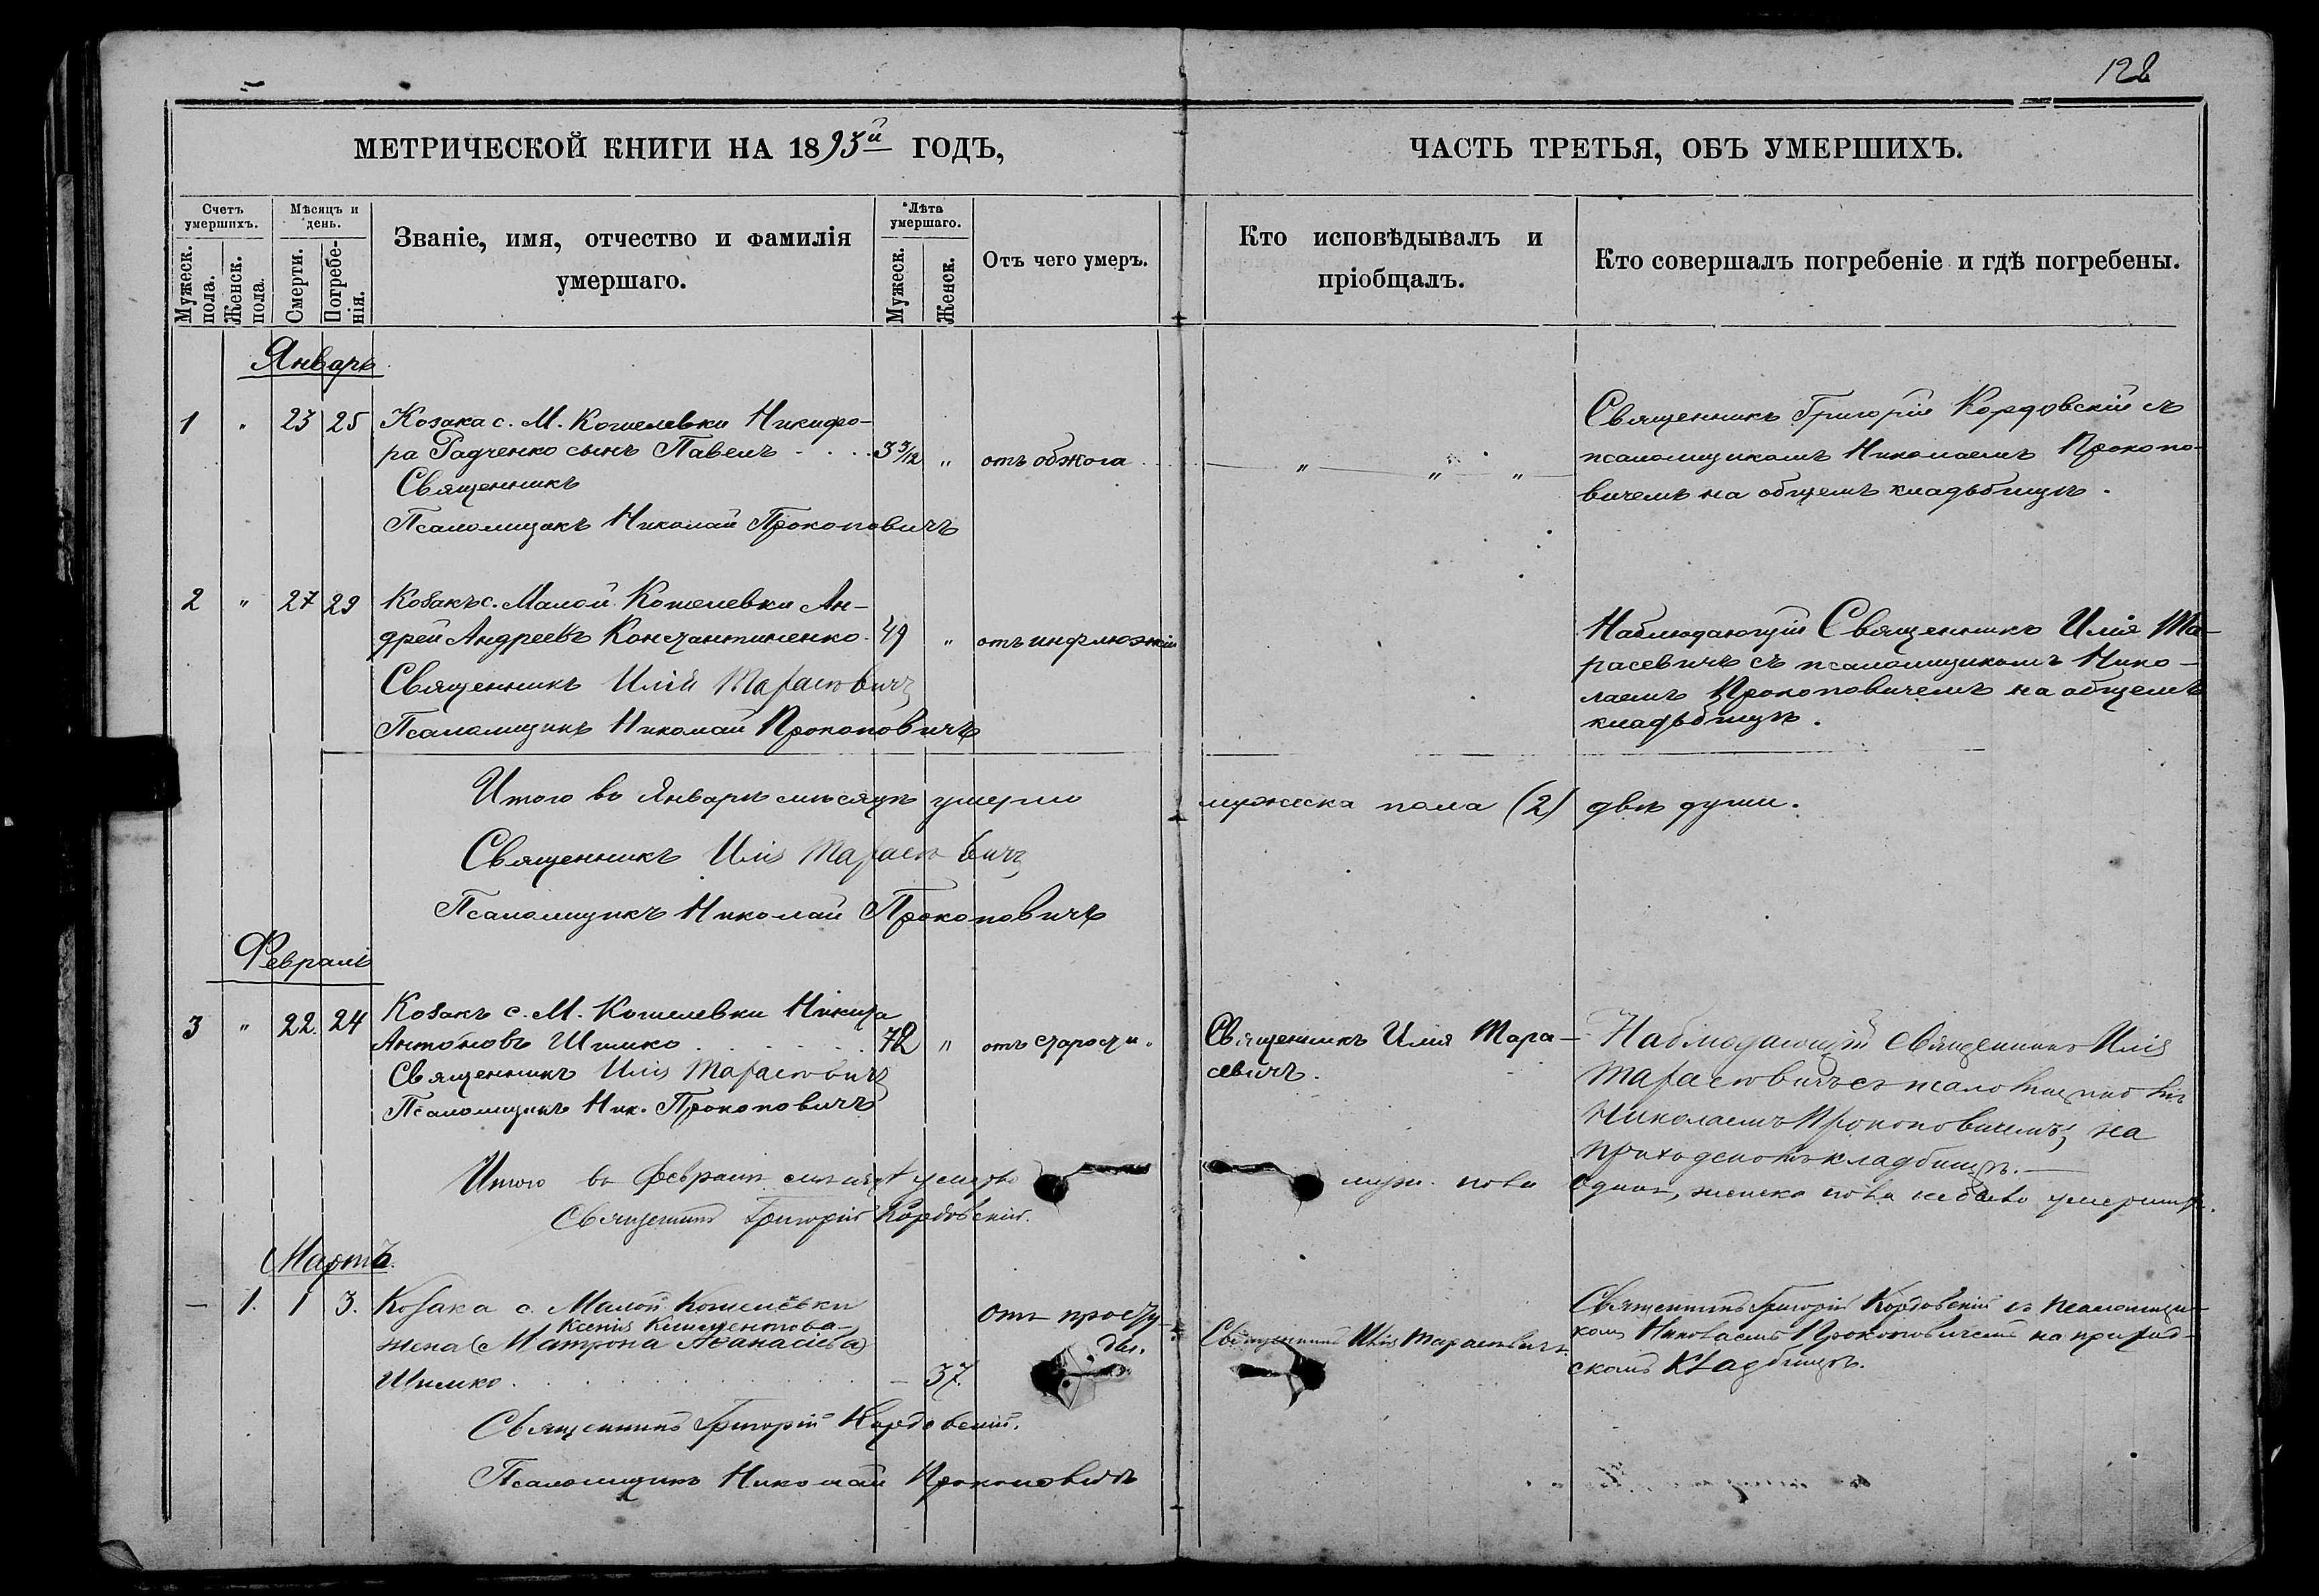 128
МЕТРИЧЕСКОЙ КНИГИ НА 1893й ГОДЪ,
ЧАСТЬ ТРЕТЬЯ, ОБЪ УМЕРШИХЪ.
Счетъ умершихъ.
Мужеск. пола.
Женск. пола.
Мѣсяцъ и день.
Смерти.
Погребе-
нія.
Званіе, имя, отчество и фамилія
умершаго.
Лѣта умершаго.
Мужеск.
Женск.
Отъ чего умеръ.
Кто исповѣдывалъ и
пріобщалъ.
Кто совершалъ погребеніе и гдѣ погребены.
Январь
1 " 23 25 Козака с. М. Кошелевки Никифо-
ра Радченко сынъ Павелъ . . . 3 3/12 " отъ обжога
Священникъ
Псаломщикъ Николай Прокоповичъ
" " "
Священникъ Григорій Кордовскій съ
псаломщикомъ Николаемъ Прокопо-
вичемъ на общемъ кладьбищѣ.
2 " 27 29 Козакъ с. Малой Кошелевки Ан-
дрей Андреевъ Константиненко 49 " отъ инфлюэнціи
Священникъ Илія Тарасевичъ
Псаломщикъ Николай Прокоповичъ
Наблюдающій Священникъ Илія Та-
расевичъ съ псаломщикомъ Нико-
лаемъ Прокоповичемъ на общемъ
кладьбищѣ.
Итого въ Январѣ мѣсяцѣ умерло мужеска пола (2) двѣ души.
Священникъ Илія Тарасевичъ
Псаломщикъ Николай Прокоповичъ
Февраль
3 " 22. 24 Козакъ с. М. Кошелевки Никита
Антоновъ Шимко . . . . . . 72 " отъ старости.
Священникъ Илія Тарасевичъ
Псаломщикъ Ник. Прокоповичъ
Священникъ Илія Тара-
севичъ.
Наблюдающій Священникъ Илія
Тарасевичъ съ
Николаемъ Прокоповичемъ на
кладбищѣ.
Итого въ Февралѣ умерло муж. пола Одинъ, женска пола не было умершихъ.
Священникъ Григорій Кордовскій.
Мартъ.
— 1. 1 3. Козака с. Малой Кошелёвки
Ксенія Климентова
жена (Матрона Аѳанасіева)
Шимко . . . . . . . . — 37.
отъ просту-
ды.
Священникъ Илія Тарасевичъ.
Священникъ Григорій Кордовскій съ псаломщи-
комъ Николаемъ Прокоповичемъ на приход-
скомъ кладбищѣ.
Священникъ Григорій Кордовскій.
Псаломщикъ Николай Прокоповичъ